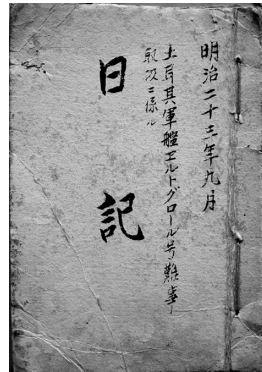 明治二十三年九月
土耳其軍艦エルトグロール号難事
取扱ニ係ル
日記